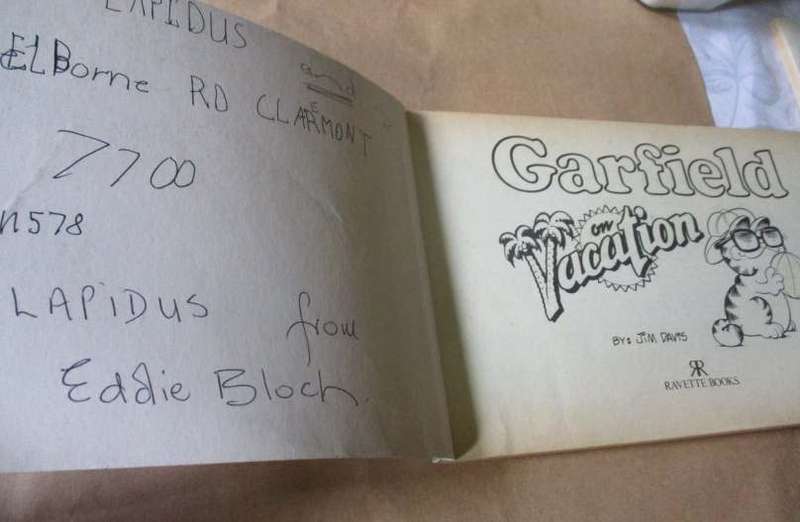 LAPIDUS
and
ELBorne RD CLAREMONT
7700
578
LAPiDUS
from
Eddie Bloch.
Garfield
on
Vacation
BY: JIM DAVIS
RR
RAVETTE BOOKS